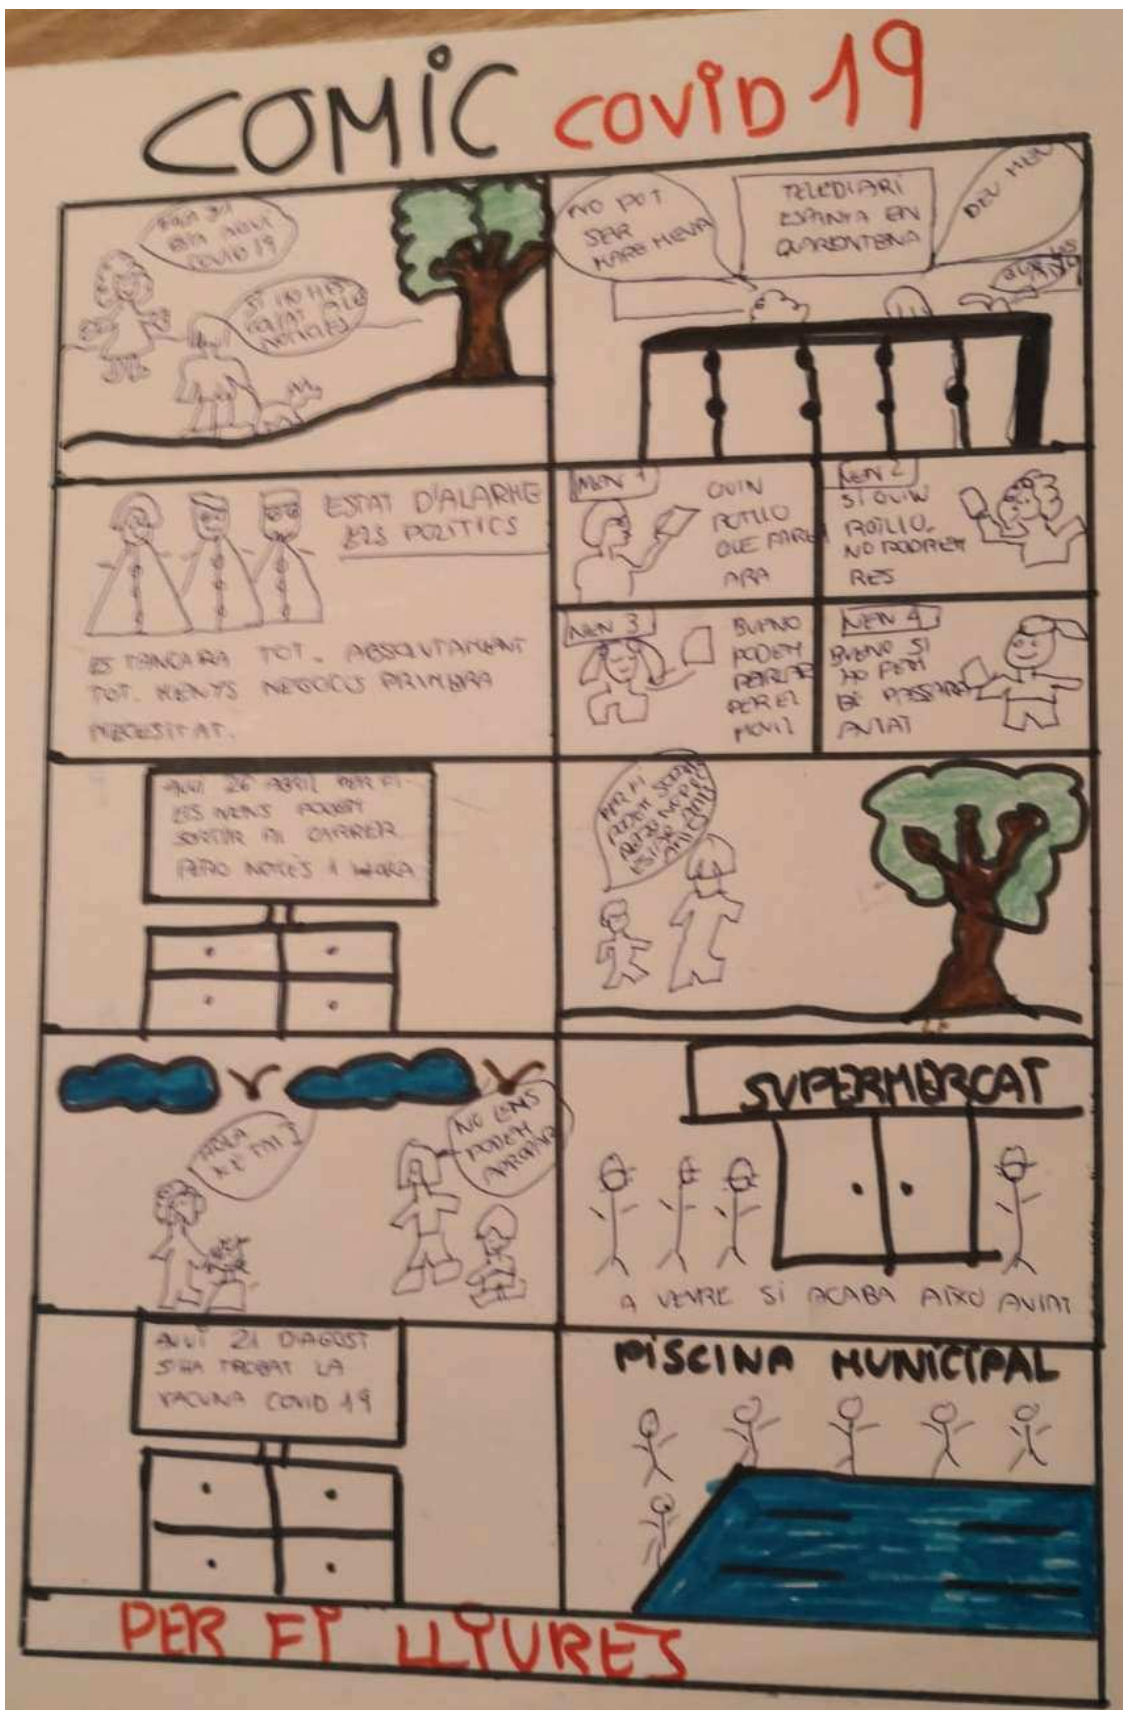 COMIC COVID 19
COVID 19
SI NO HAS
NOTICIES
NO POT
SER
MARE MEVA
TELEDIARI
ESPANYA EN
QUARENTENA
DEU MEU
ESTAT D'ALARME
ELS POLITICS
ES TANCARA TOT. ABSOLUTAMENT
TOT. MENYS NEGOCIS PRIMERA
NECESITAT.
NEN 1
QUIN
ROTLLO
QUE FAREM
ARA
NEN 2
SI QUIN
ROTLLO.
NO PODREM
RES
NEN 3
BUENO
PODEM
PARLAR
PER EL
MOVIL
NEN 4
BUENO SI
HO FEM
BÉ PASSARA
AVIAT
AVUI 26 ABRIL PER FI
ELS NENS PODEN
SORTIR AL CARRER.
PERO NOMÉS 1 HORA
PER FI
PODEM SORTIR
PERO NO PEC
ESTAR AMB
AMICS
HOLA
KE TAL?
NO ENS
PODEM
APROPAR
SUPERMERCAT
A VEURE SI ACABA AIXO AVIAT
AVUI 21 D'AGOST
S'HA TROBAT LA
VACUNA COVID 19
PISCINA MUNICIPAL
PER FI LLIURES